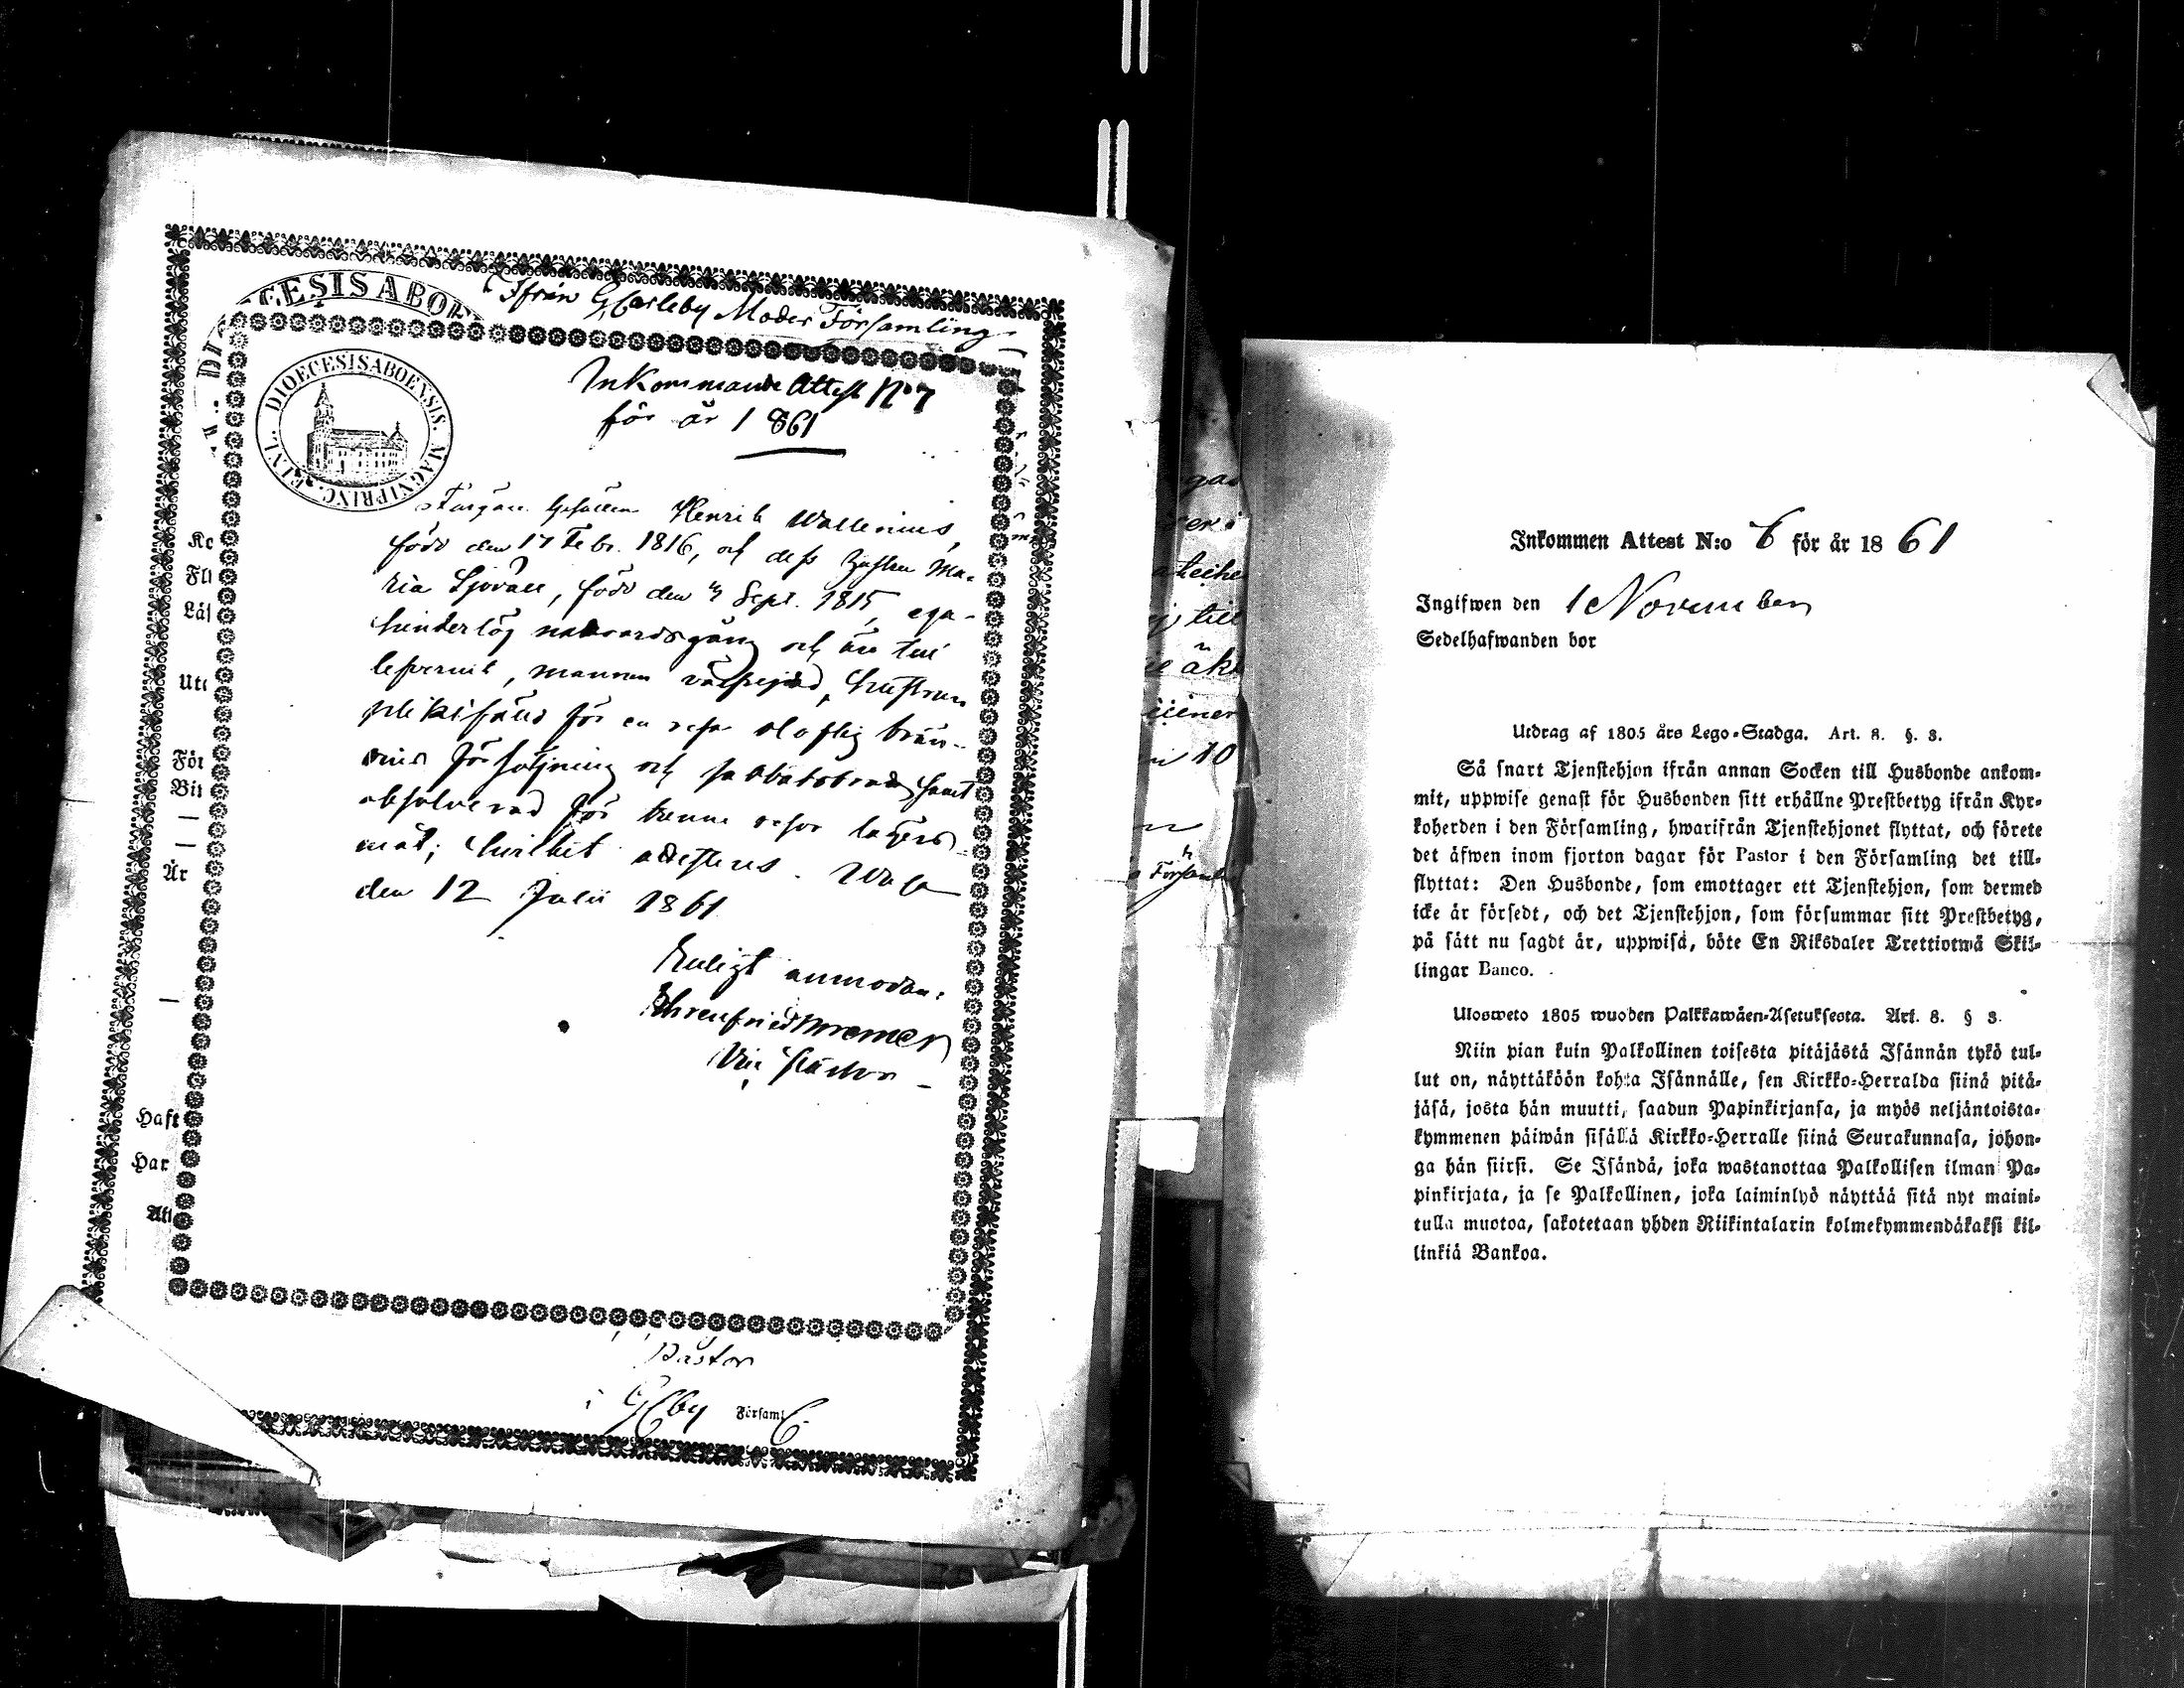 Ifrån Gl Carleby Moder Församling
DIOECESIS ABOENSIS. MAGNI PRINC. FINL.
Inkommande Attest No 7
för år 1861
Henrik Wallenius,
född den 17 Febr. 1816, och dess Ma-
ria Sjövall, född den Sept. 1815, ega
hinderlös nattvardsgång och äro till
mannen hustrun
för en resa olaflig brän-
vins försäljning och sabbatsbrott, samt
absolverad för trenne resor lägers-
mål; hvilket attesteras. Wasa
den 12 Julii 1861.
Enligt anmodan:
Ehrenfried Bremer
Vice Pastor
Ke
Fll
Läs
Utt
För
Bit
År
Haft
Har
Att
Pastor
i GlCby Församl
Inkommen Attest N:o 6 för år 1861
Ingifwen den 1 November
Sedelhafwanden bor
Utdrag af 1805 års Lego-Stadga. Art. 8. §. 8.
Så snart Tjenstehjon ifrån annan Socken till Husbonde ankom-
mit, uppwise genast för Husbonden sitt erhållne Prestbetyg ifrån Kyr-
koherden i den Församling, hwarifrån Tjenstehjonet flyttat, och förete
det äfwen inom fjorton dagar för Pastor i den Församling det till-
flyttat: Den Husbonde, som emottager ett Tjenstehjon, som dermed
icke är försedt, och det Tjenstehjon, som försummar sitt Prestbetyg,
på sätt nu sagdt är, uppwisa, böte En Riksdaler Trettiotwå Skil-
lingar Banco.
Ulosweto 1805 wuoden Palkkawäen-Asetuksesta. Art. 8. § 8.
Niin pian kuin Palkollinen toisesta pitäjästä Isännän tykö tul-
lut on, näyttäköön kohta Isännälle, sen Kirkko-Herralda siinä pitä-
jäsä, josta hän muutti, saadun Papinkirjansa, ja myös neljäntoista-
kymmenen päiwän sisällä Kirkko-Herralle siinä Seurakunnasa, johon-
ga hän siirsi. Se Isändä, joka wastanottaa Palkollisen ilman Pa-
pinkirjata, ja se Palkollinen, joka laiminlyö näyttää sitä nyt maini-
tulla muotoa, sakotetaan yhden Riikintalarin kolmekymmendäkaksi kil-
linkiä Bankoa.